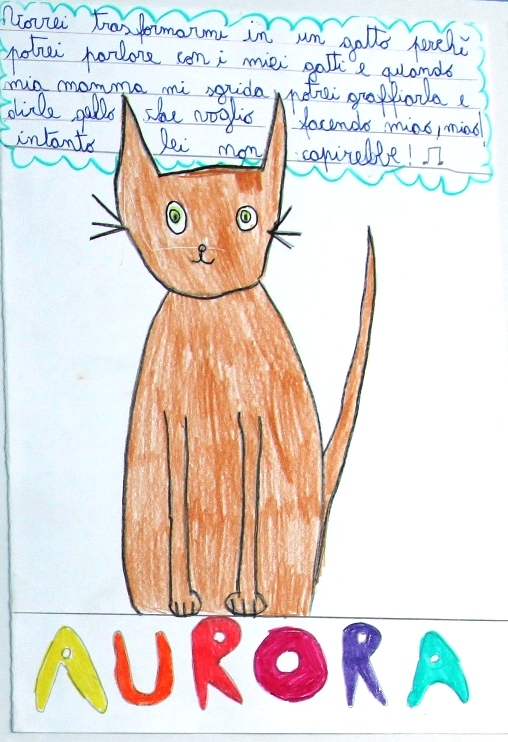 Vorrei trasformarmi in un gatto perchè
potrei parlare con i miei gatti e quando
mia mamma mi sgrida potrei graffiarla e
dirle quello che voglio facendo miao, miao!
intanto lei non capirebbe!
AURORA